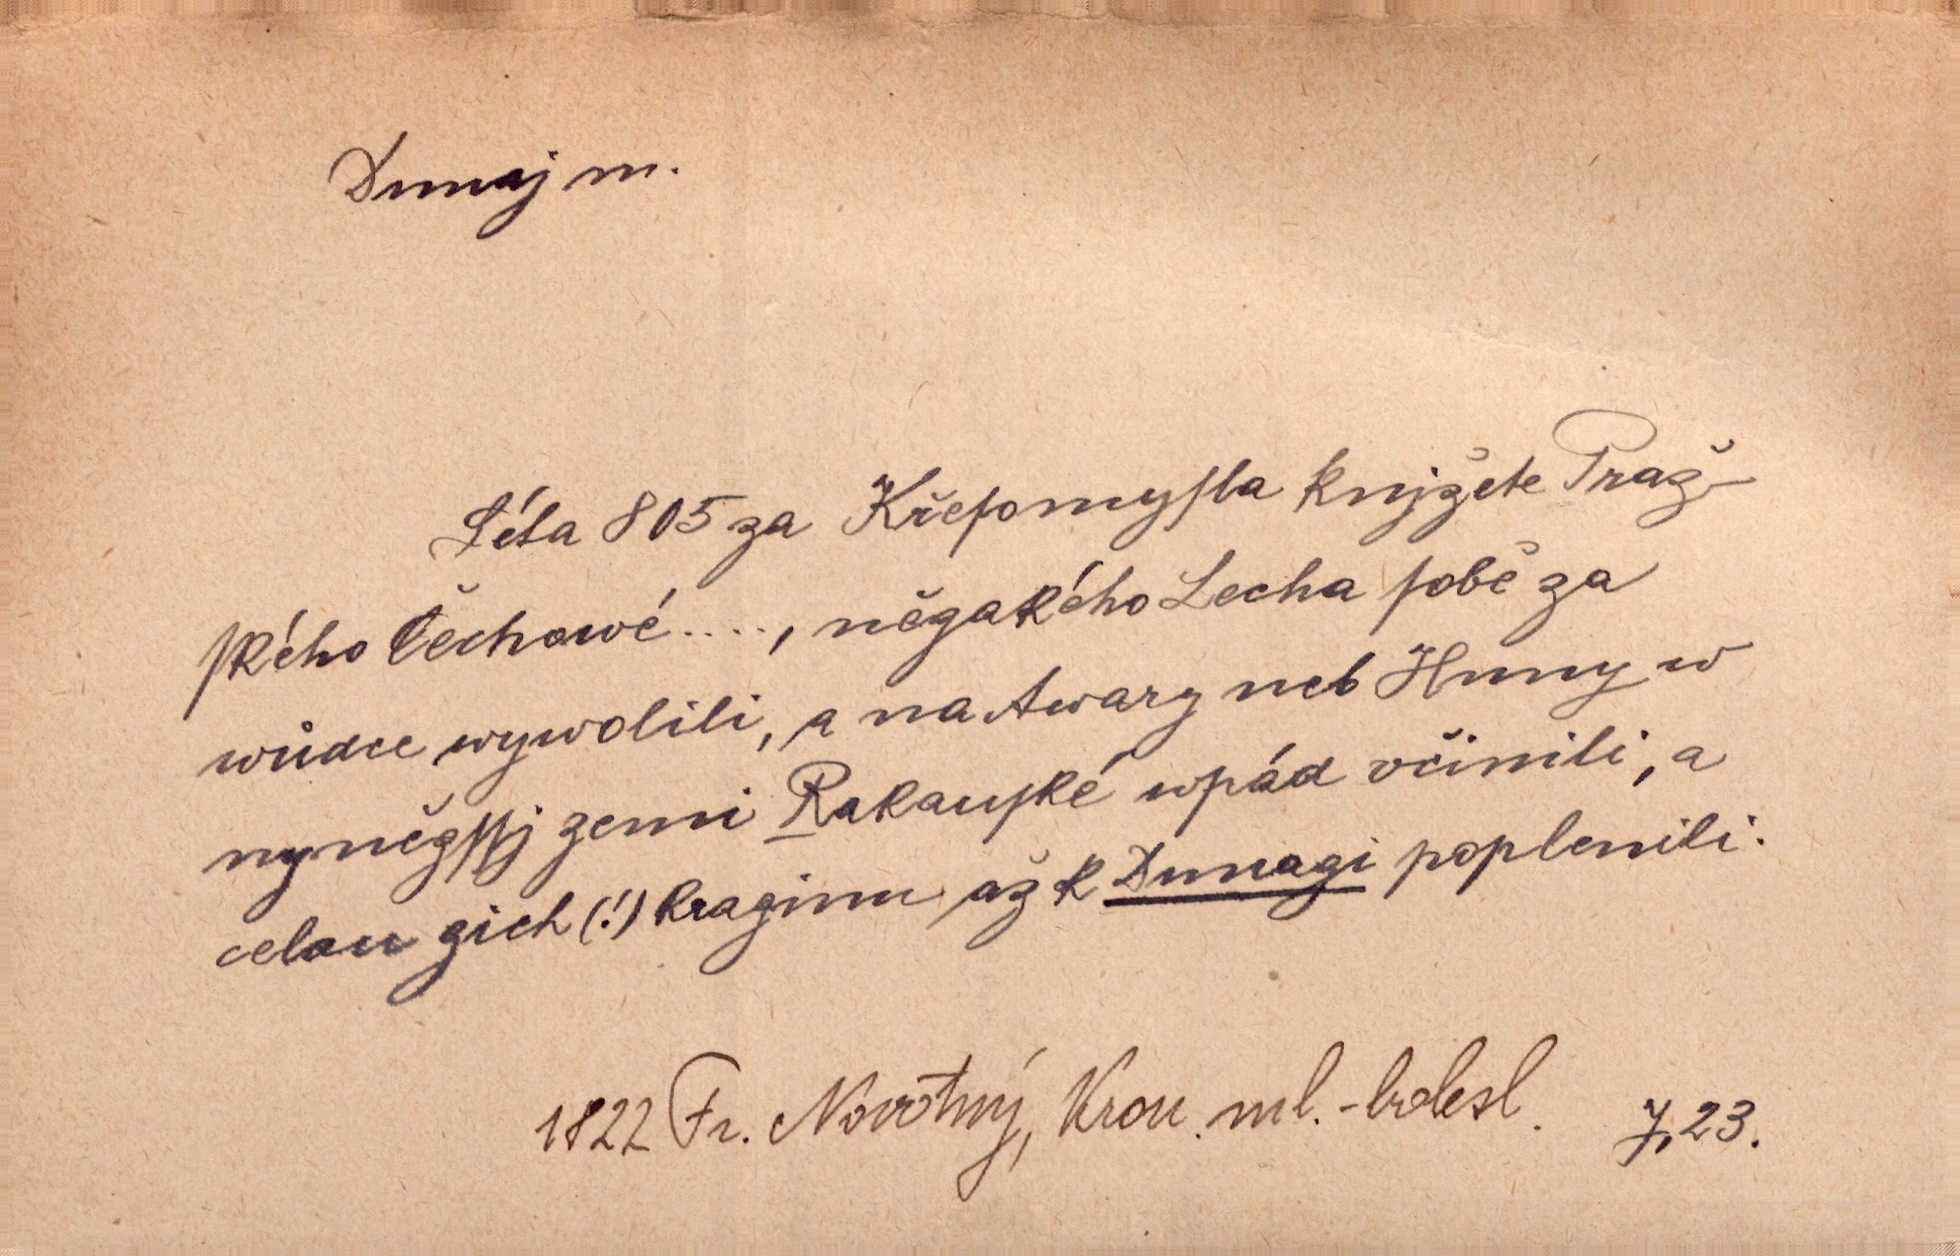 Dunaj m.
Léta 805 za Křeſomyſla knjžete Praž-
ſkého Čechowé....,něgakého Lecha ſobě za
wůdce wywolili, a na Awary neb Hunny w
nyněgſſj zemi Rakauſké wpád včinili, a
celau gich (!) kraginu až k Dunagi poplenili.
1822 Fr. Novotný, Kron. ml.-bolesl. I, 23.